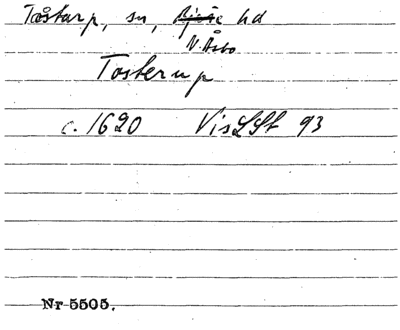 Tåstarp, sn, Bjäre hd
N. Åsbo
Tosterup
c. 1620 VisLSt 93
Nr 5505.